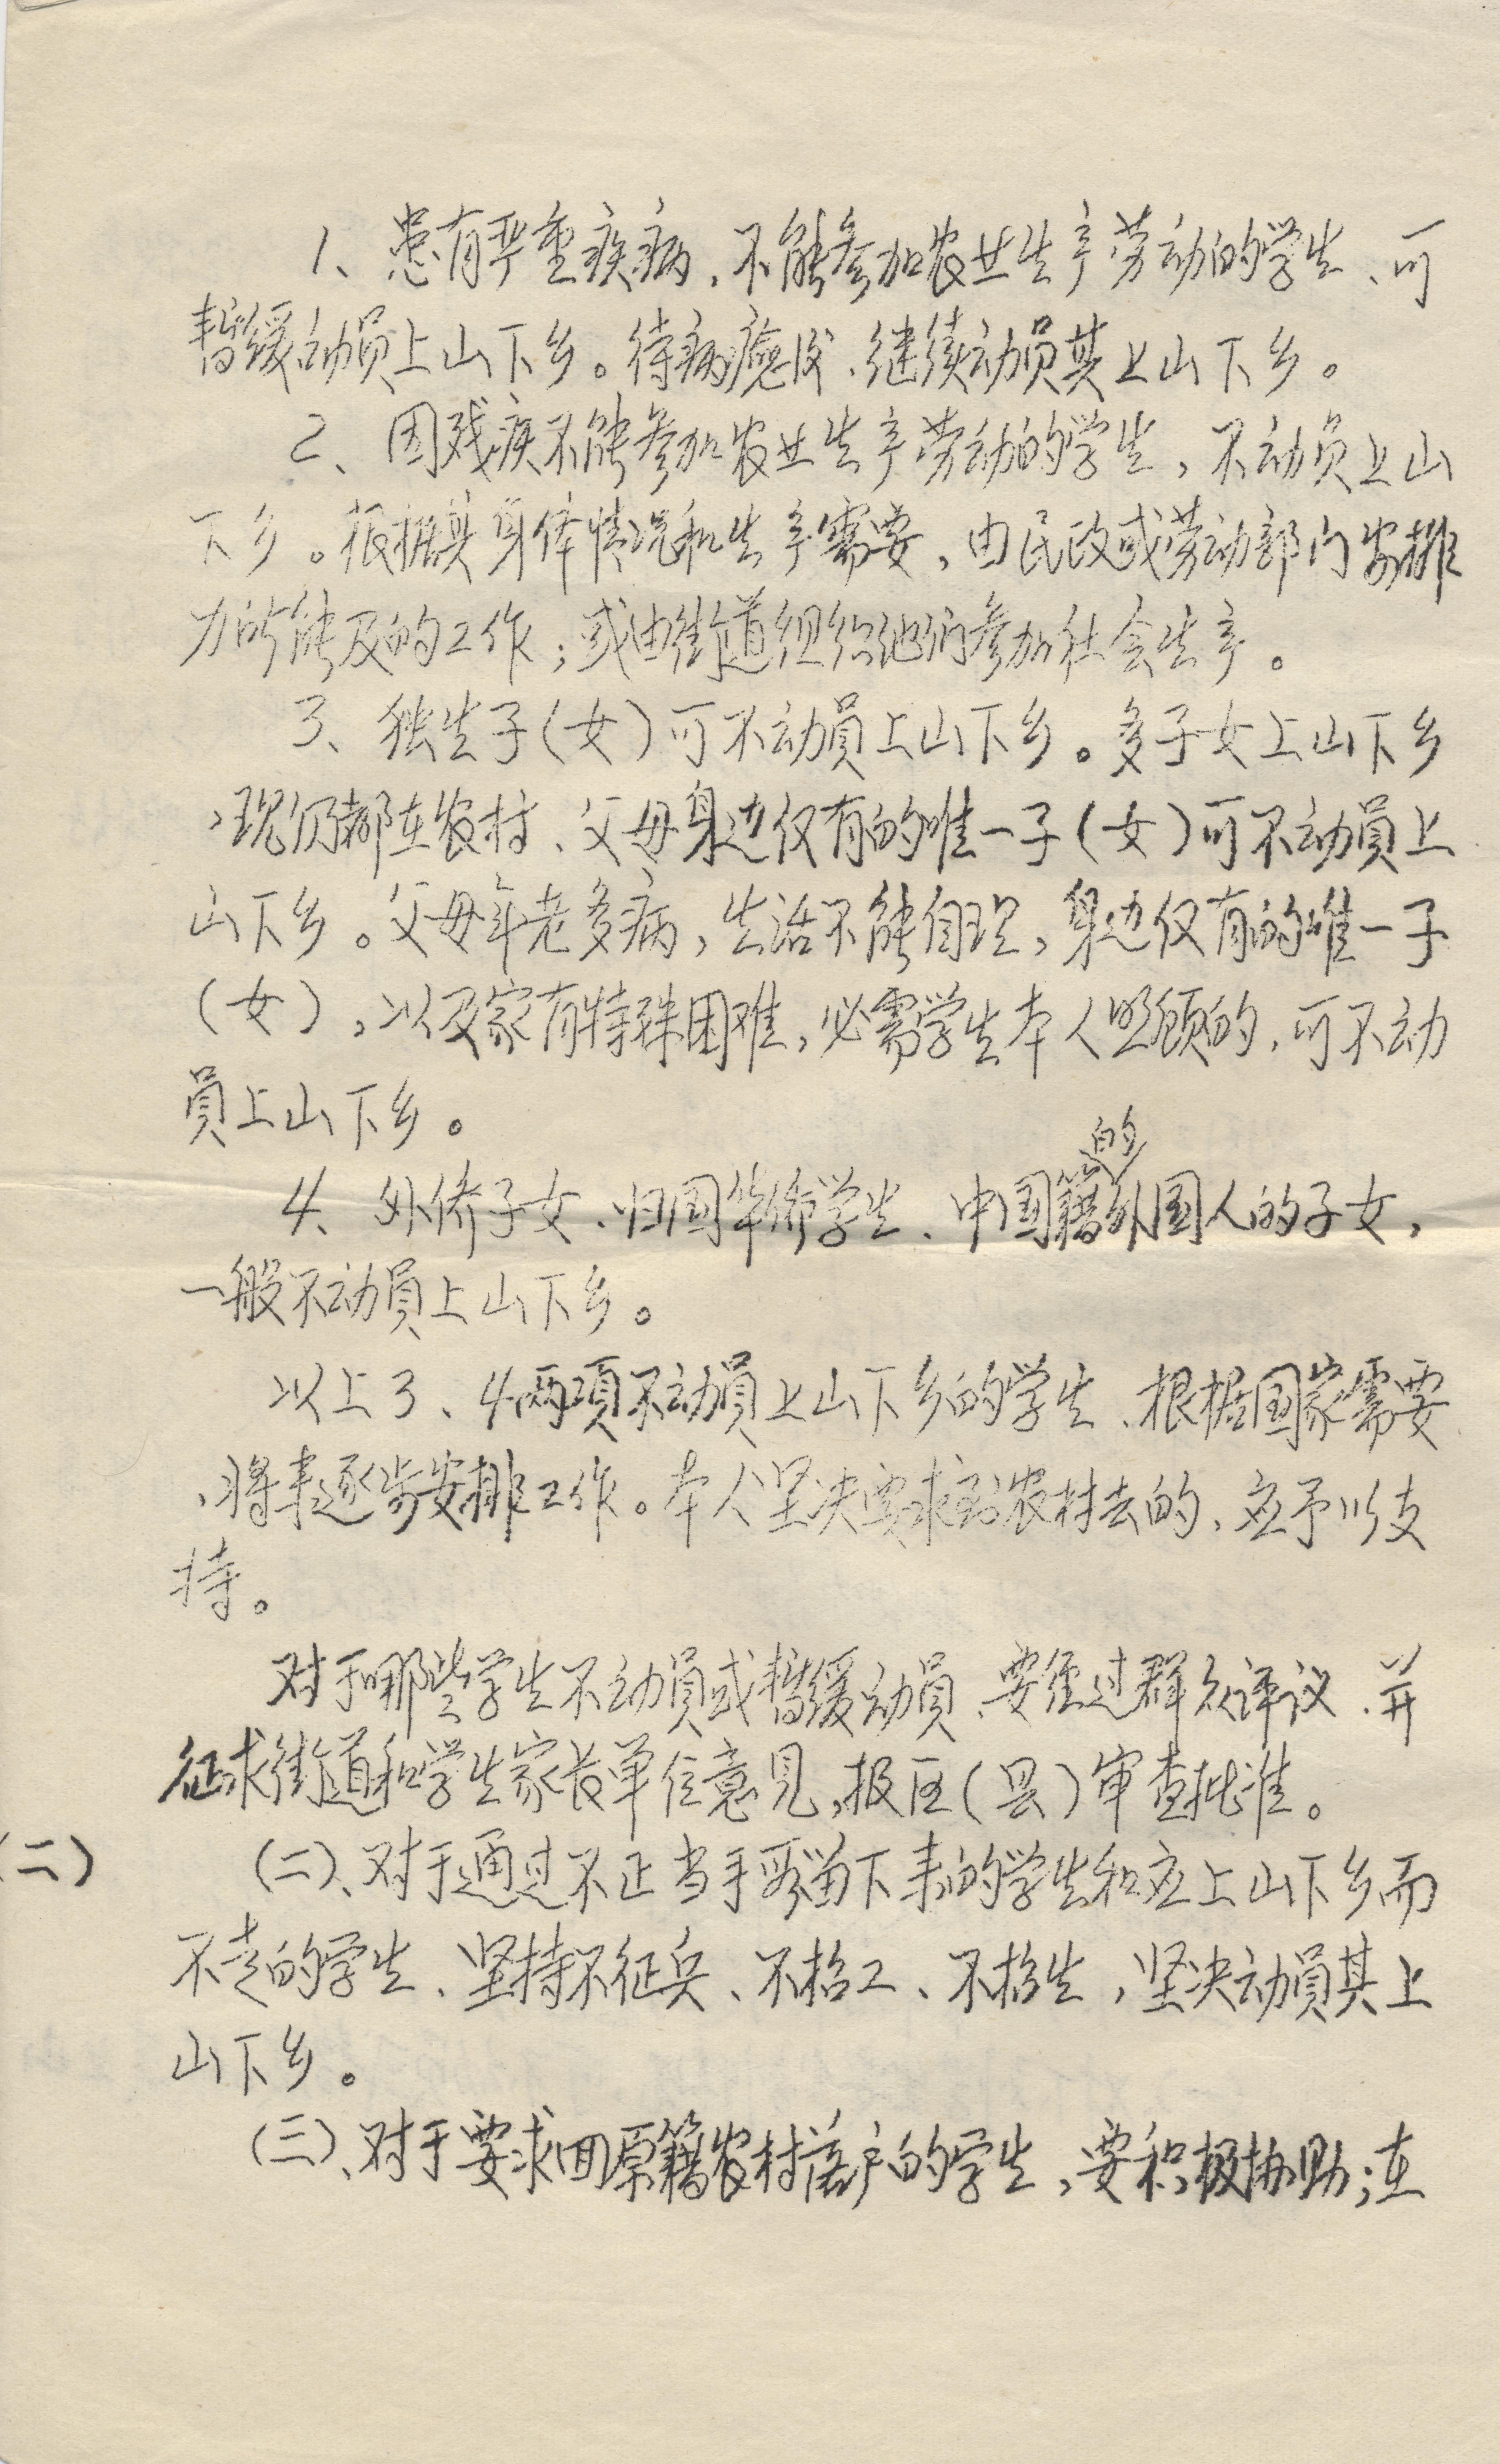 1、患有严重疾病，不能参加农业生产劳动的学生、可
暂缓动员上山下乡。待病癒后、继续动员其上山下乡。
2、因残疾不能参加农业生产劳动的学生，不动员上山
下乡。根据其身体情况和生产需要，由民政或劳动部门安排
力所能及的工作；或由街道组织他们参加社会生产。
3、独生子（女）可不动员上山下乡。多子女上山下乡
，现仍都在农村、父母身边仅有的唯一子（女）可不动员上
山下乡。父母年老多病，生活不能自理，身边仅有的唯一子
（女），以及家有特殊困难，必需学生本人照顾的，可不动
员上山下乡。
的
4、外侨子女、归国华侨学生、中国籍外国人的子女，
一般不动员上山下乡。
以上3、4两项不动员上山下乡的学生、根据国家需要
、将来逐步安排工作。本人坚决要求到农村去的，应予以支
持。
对于哪些学生不动员或暂缓动员、要经过群众评议、并
征求街道和学生家长单位意见，报区（县）审查批准。
（二） （二）、对于通过不正当手段留下来的学生和应上山下乡而
不走的学生、坚持不征兵、不招工、不招生，坚决动员其上
山下乡。
（三）、对于要求回原籍农村落户的学生，要积极协助；在